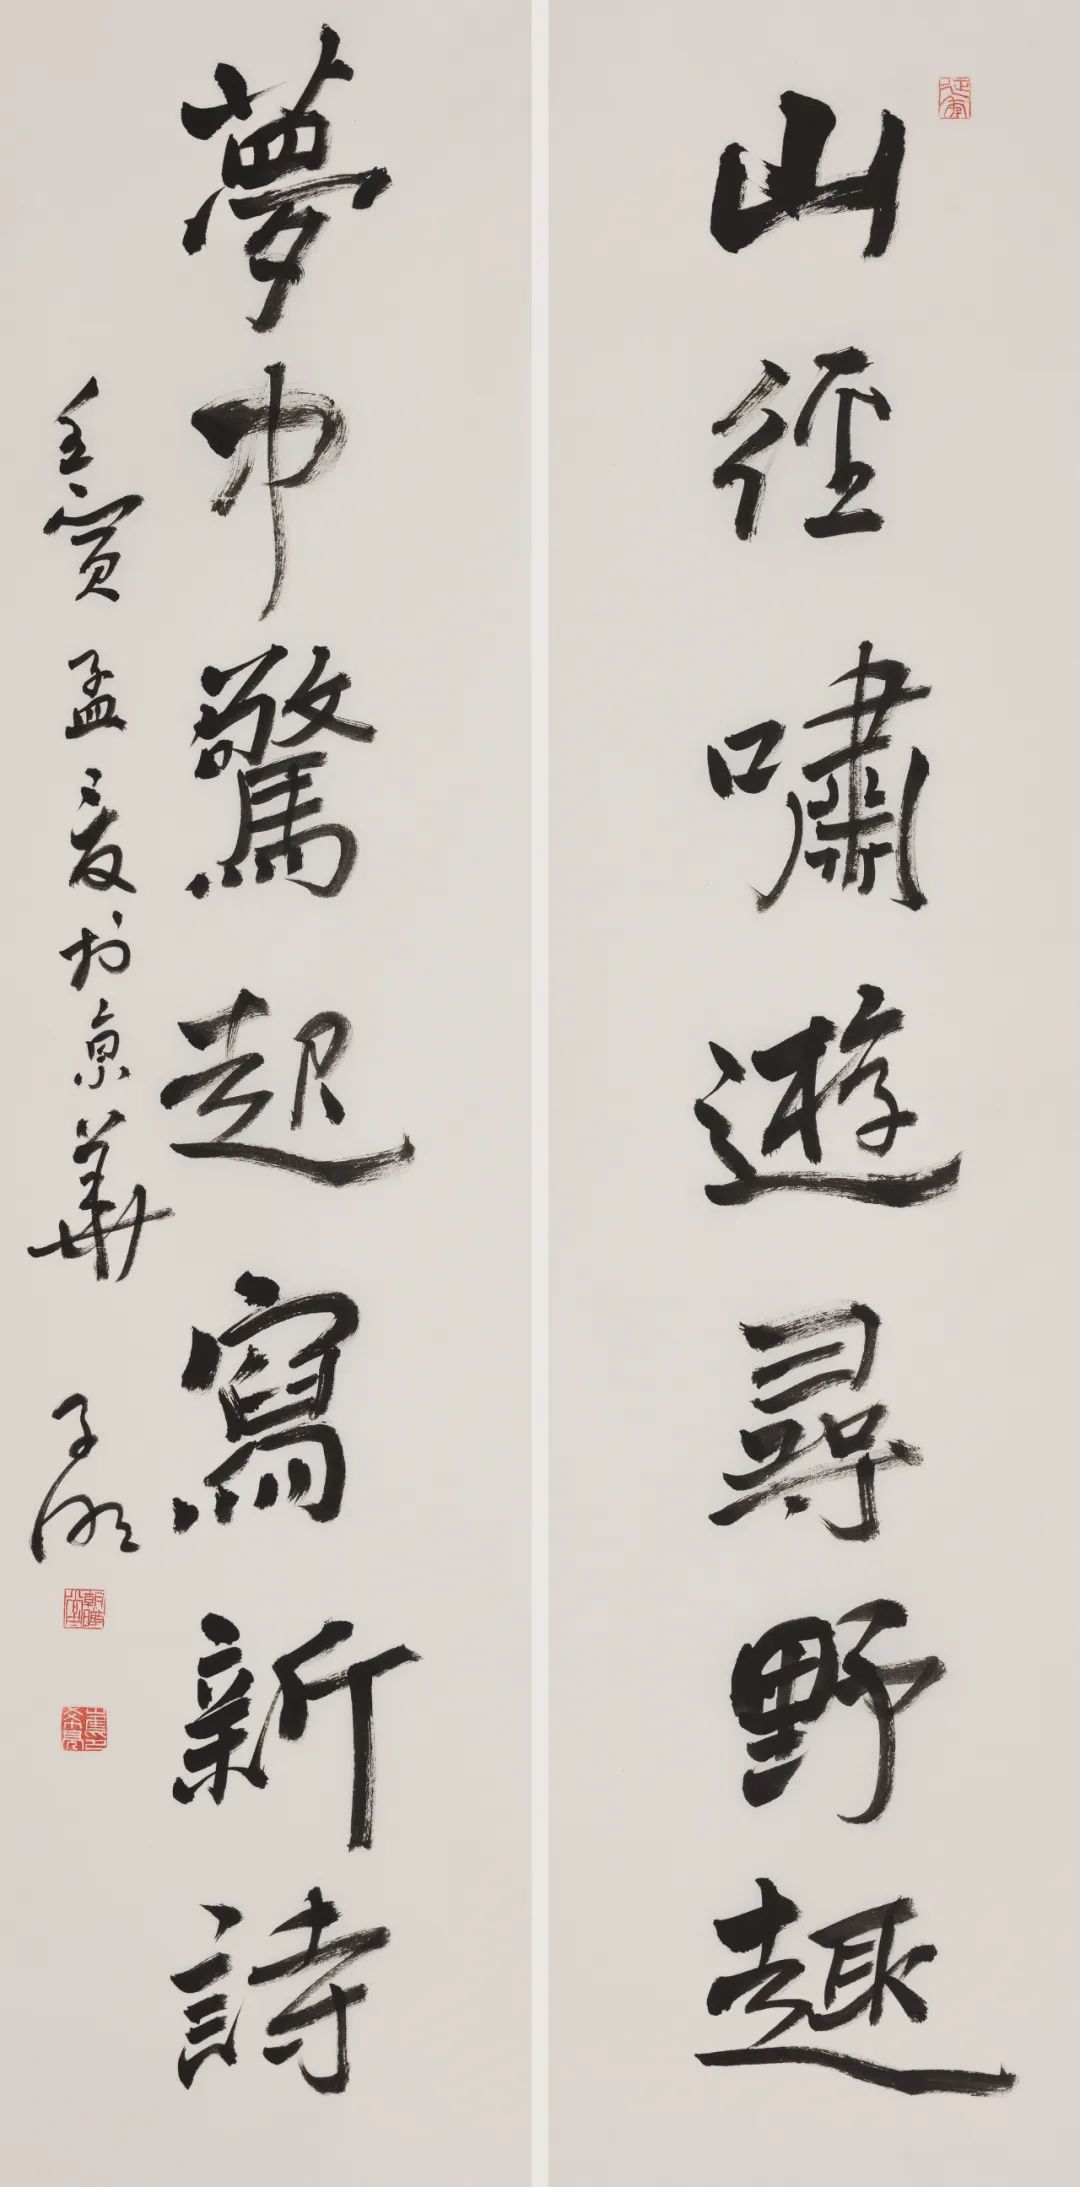 山徑嘯遊尋野趣
夢中驚起寫新詩
壬寅孟夏於京華
子明